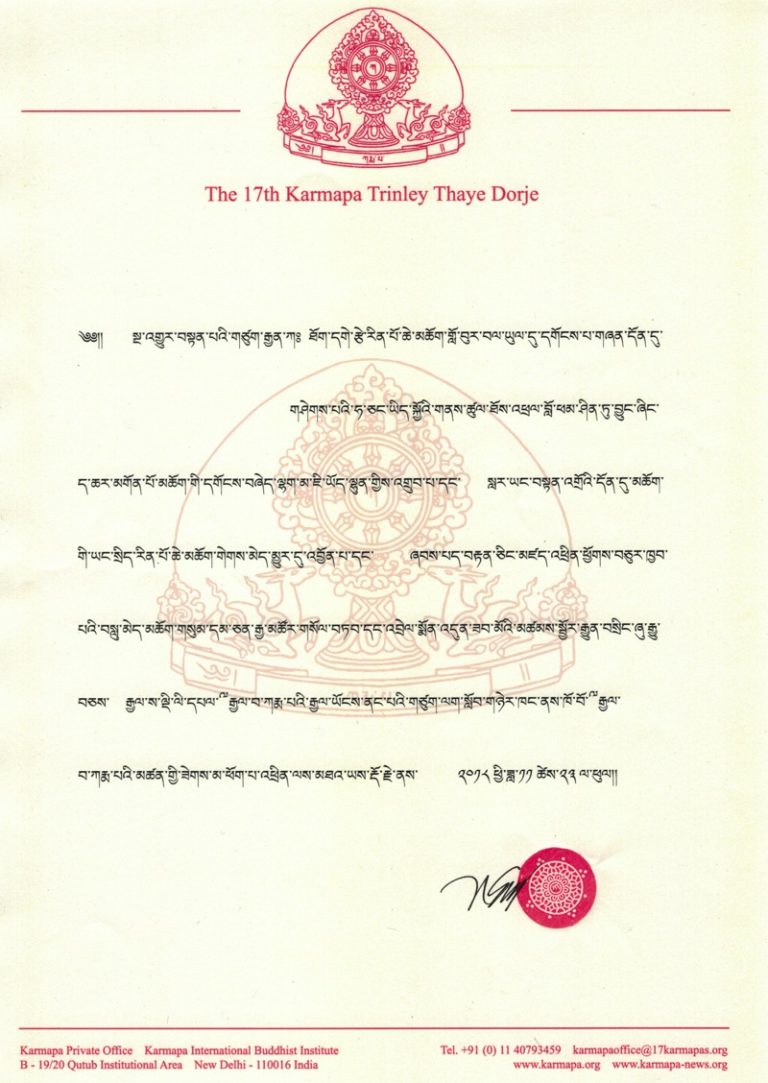 ༄༅། །
ཀརྨ་པ
The 17th Karmapa Trinley Thaye Dorje
༄༅།། སྔ་འགྱུར་བསྟན་པའི་གཙུག་རྒྱན་ཀཿ ཐོག་དགེ་རྩེ་རིན་པོ་ཆེ་མཆོག་གློ་བུར་བལ་ཡུལ་དུ་དགོངས་པ་གཞན་དོན་དུ་
གཤེགས་པའི་ཧ་ཅང་ཡིད་སྐྱོའི་གནས་ཚུལ་ཐོས་འཕྲལ་བློ་ཕམ་ཤིན་ཏུ་བྱུང་ཞིང་
ད་ཆར་མགོན་པོ་མཆོག་གི་དགོངས་བཞེད་ལྷག་མ་ཇི་ཡོད་ལྷུན་གྱིས་འགྲུབ་པ་དང་ སླར་ཡང་བསྟན་འགྲོའི་དོན་དུ་མཆོག་
གི་ཡང་སྲིད་རིན་པོ་ཆེ་མཆོག་གེགས་མེད་མྱུར་དུ་འབྱོན་པ་དང་ ཞབས་པད་བརྟན་ཅིང་མཛད་འཕྲིན་ཕྱོགས་བཅུར་ཁྱབ་
པའི་བསླུ་མེད་མཆོག་གསུམ་དམ་ཅན་རྒྱ་མཚོར་གསོལ་བཏབ་དང་འབྲེལ་སྨོན་འདུན་ཟབ་མོའི་མཚམས་སྦྱོར་རྒྱུན་བསྲིང་ཞུ་རྒྱུ་
བཅས་ རྒྱལ་ས་ལྡི་ལི་དཔལ་རྒྱལ་བ་ཀརྨ་པའི་རྒྱལ་ཡོངས་ནང་པའི་གཙུག་ལག་སློབ་གཉེར་ཁང་ནས་ཁོ་བོ་རྒྱལ་
བ་ཀརྨ་པའི་མཚན་གྱི་ཟེགས་མ་ཕོག་པ་འཕྲིན་ལས་མཐའ་ཡས་རྡོ་རྗེ་ནས་ ༢༠༡༨ ཕྱི་ཟླ་༡༡ ཚེས་༢༣ ལ་ཕུལ།།
Karmapa Private Office Karmapa International Buddhist Institute
B - 19/20 Qutub Institutional Area New Delhi - 110016 India
Tel. +91 (0) 11 40793459 karmapaoffice@17karmapas.org
www.karmapa.org www.karmapa-news.org